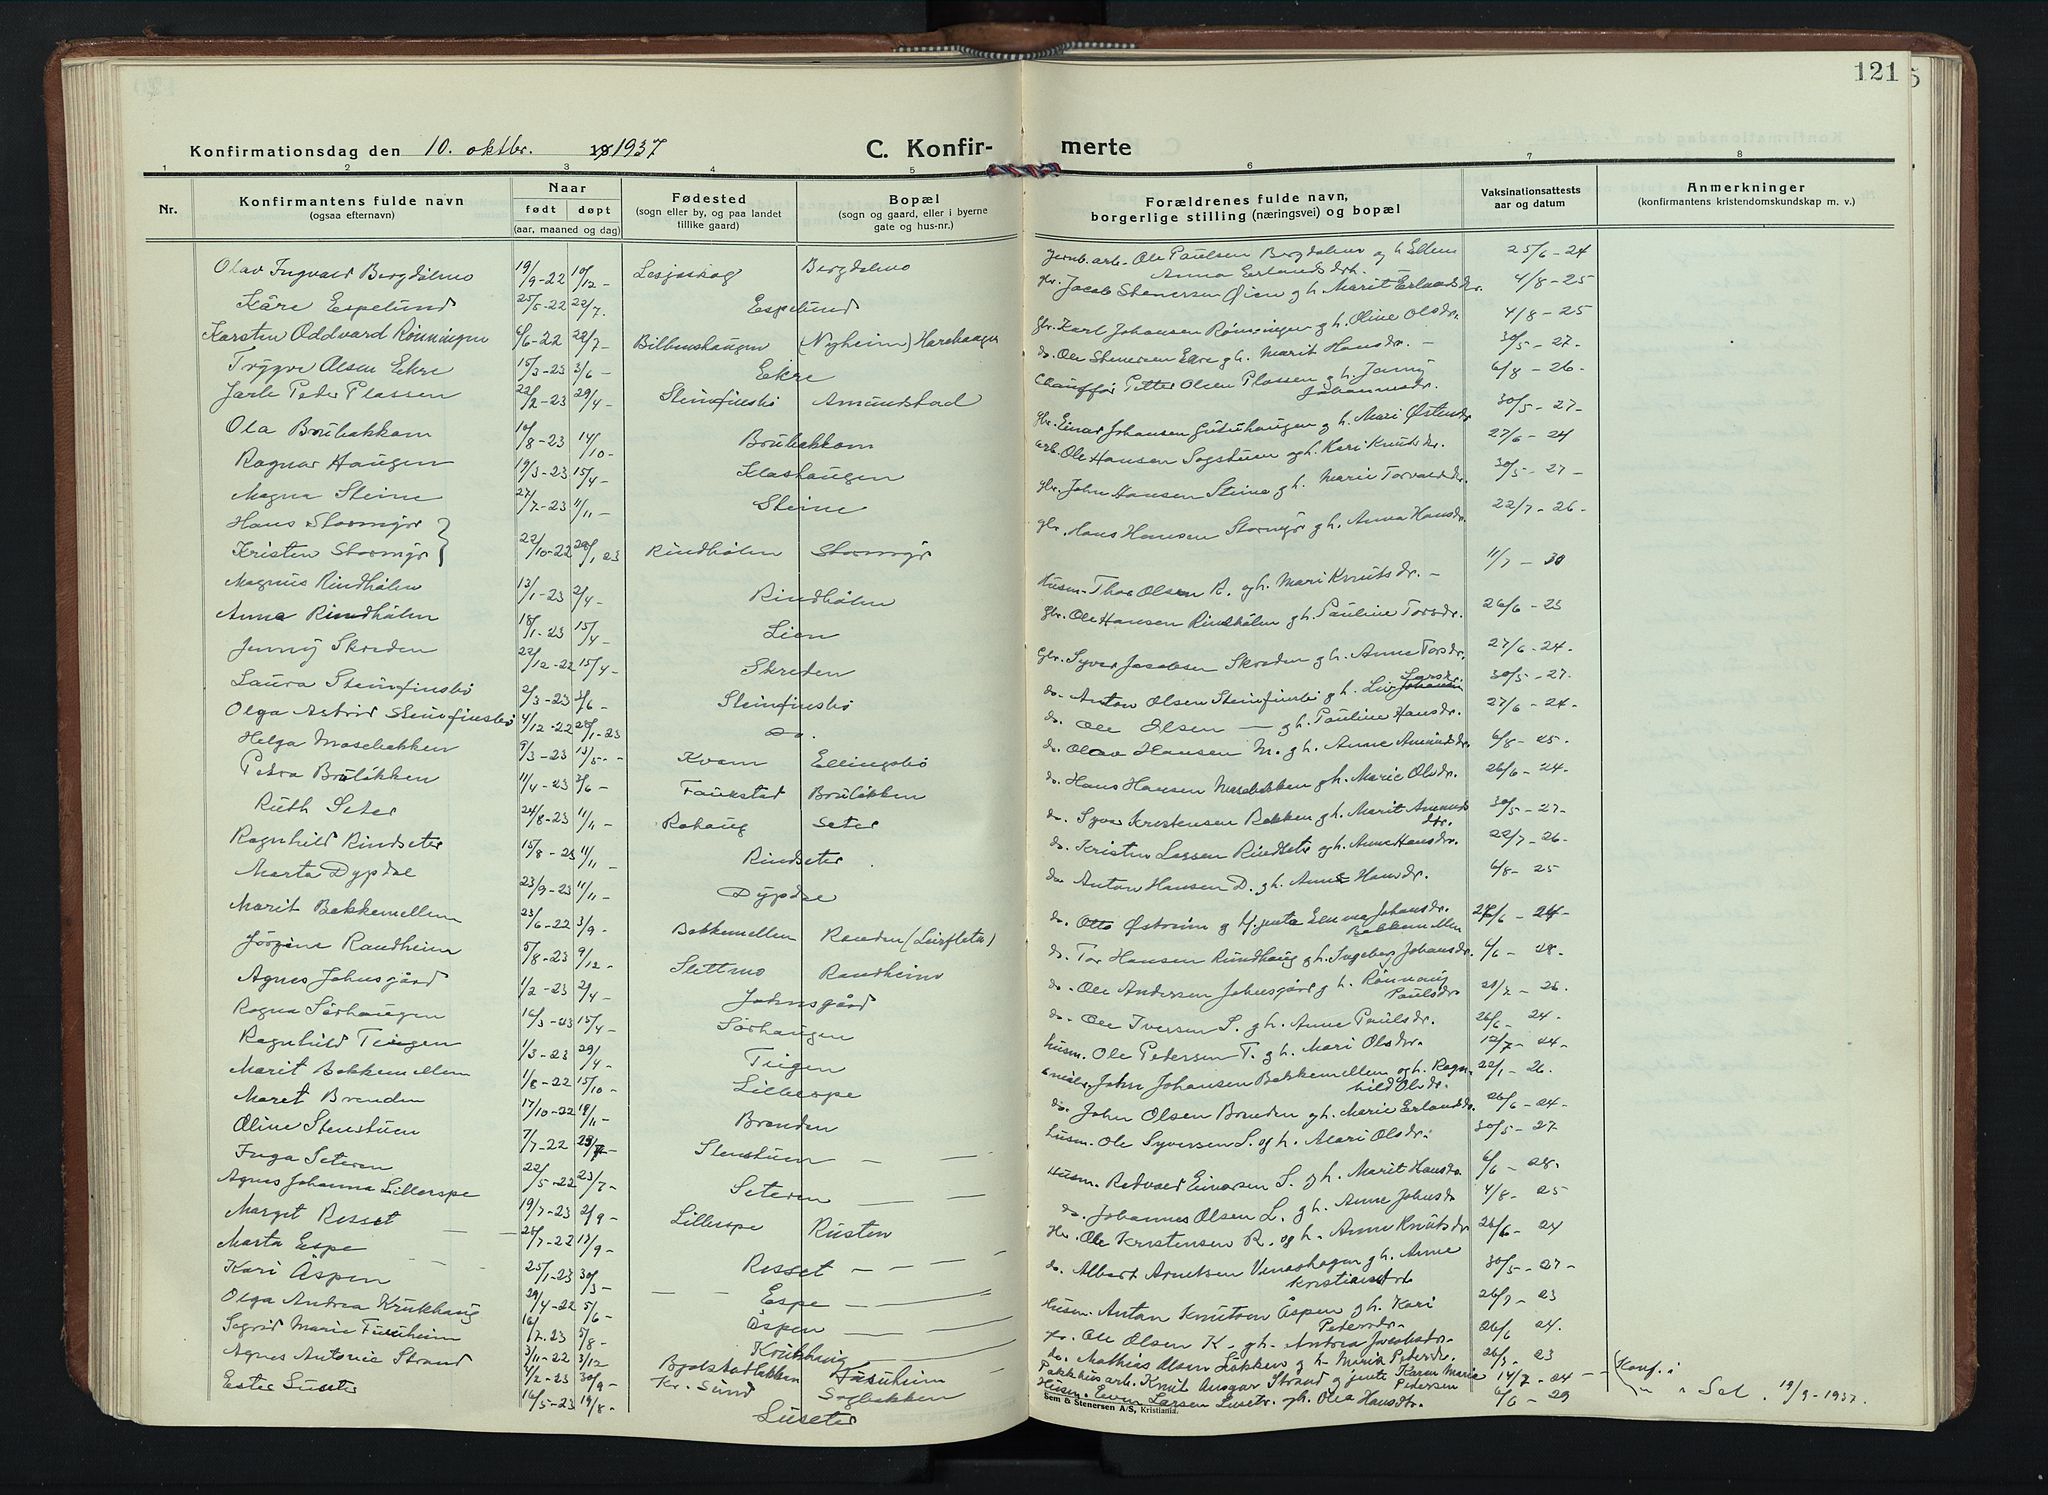 121
Konfirmationsdag den 10. oktbr. 19 1937
C. Konfir-
merte
1 2 3 4 5
6 7 8
Nr.
Konfirmantens fulde navn
(ogsaa efternavn)
Naar
født døpt
(aar, maaned og dag)
Fødested
(sogn eller by, og paa landet
tillike gaard)
Bopæl
(sogn og gaard, eller i byerne
gate og hus-nr.)
Forældrenes fulde navn,
borgerlige stilling (næringsvei) og bopæl
Vaksinationsattests
aar og datum
Anmerkninger
(konfirmantens kristendomskundskap m. v.)
Olav Ingvald Bergdølmo 19/9-22 10/12- Lesjaskog Bergdølmo
Kåre Espelund 25/5-22 22/7. Espelund
Karsten Oddvard Rønningen 6/6-22 22/7- (Nyheim)
Trygve Olsen Ekre 15/3-23 3/6- Ekre
Jarle Peder Plassen 22/2-23 29/4- Steinfinsbø Amundstad
Ola Brubakkom 10/8-23 14/10- Brubakkom
Ragnar Haugen 19/3-23 15/4- Klashaugen
Magna Steine 27/7-23 11/11- Steine
Hans Stormyr }
Kristen Stormyr } 22/10-22 28/1 23 Rindhølen Stormyr
Magnus Rindhølen 13/1-23 2/4- Rindhølen
Anna Rindhølen 18/1-23 15/4- Lien
Jenny Skreden 22/12-22 15/4- Skreden
Laura Steinfinsbø 2/3-23 3/6- Steinfinsbø
Olga Astrid Steinfinsbø 4/12-22 28/1-23 Do.
Helga Mosebakken 9/3-23 13/5- Kvam Ellingsbø
Petra Bruløkken 11/4-23 3/6- Faukstad Bruløkken
Ruth Seter 24/8-23 11/11- Rohaug Seter
Ragnhild Rindseter 15/8-23 11/11 Rindseter
Marta Dypdal 23/9-23 11/11- Dypdal
Marit Bakkemellem 23/6-22 3/9- Bakkemellem Randen (Leirfleta)
Jørgine Randheim 5/8-23 9/12- Slettmo Randheim
Agnes Johnsgård 1/2-23 2/4- Johnsgård
Ragna Sørhaugen 16/3-23 15/4- Sørhaugen
Ragnhild Teigen 1/3-23 29/4- Teigen
Marit Bakkemellem 1/8-22 15/10- Lillerspe
Maret Brenden 17/10-22 19/11- Brenden
Oline Stenstuen 7/7-22 Stenstuen
Inga Seteren 22/5-22 23/7- Seteren
Agnes Johanna Lillerspe 19/7-23 2/9- Lillerspe Rusten
Marget Resset 25/7-22 17/9- Resset
Marta Espe 25/1-23 30/3- Espe
Kari Åspen 29/4-22 5/6- Åspen
Olga Andrea Krukhaug Krukhaug
Sigrid Marie Furuheim 3/11-22 3/12 Furuheim
Agnes Antonie Strand 4/2-23 30/9- Kr. Sund Sogbakken
Ester Luseter 16/5-23 19/8- Luseter
Jernb. arb. Ole Paulsen Bergdølmo og h. Ellen
Anna Erlandsdtr. 25/6-24
Gbr. Jacob Stenersen Øien g h. Marit Erlandsdr. 4/8-25
Gbr. Karl Johansen Rønningen g h. Oline Olsdr. 4/8-25
do. Ole Stenersen Ekre g h. Marit Hansdr. - 30/5-27-
Chauffør Petter Olsen Plassen g h. Jenny
Johannesdr. 6/8-26-
Gbr. Einar Johansen Gutuhaugen g h. Mari Østensdr. 30/5-27-
arb. Ole Hansen Sogstuen og h. Kari Knutsdr. 27/6-24
Gbr. John Hansen Steine g h. Marie Torvaldsdr. 30/5-27-
Gbr. Hans Hansen Stormyr g h. Anna Hansdr. 22/7-26-
Husm. Thor Olsen R. og h. Mari Knutsdr. - 11/7-30
Gbr. Ole Hansen Rindhølen g h. Pauline Torsdr. 26/6-23
Gbr. Syver Jacobsen Skreden g h. Anne Torsdr. 27/6-24-
do. Anton Olsen Steinfinsbø g h. Liv Larsdr. 30/5-27.
do. Ole Olsen - g h. Pauline Hansdr. 27/6-24-
do. Olav Hansen M. g h. Anne Amundsdr. 6/8-25-
do. Hans Hansen Mosebakken g h. Marie Olsdr. 26/6-24-
do. Syver Kristensen Bakken g h. Marit Amunds
dtr. 30/5-27-
do. Kristen Larsen Rindseter og h. Anne Hansdr. 22/7-26-
do. Anton Hansen D. g h. Anne Hansdr. 6/8-25
do. Otto Østrem g pike Emma Johansdr.
Bakkemellem 26/6-24-
do. Tor Hansen Rundhaug g h. Ingeborg Johansdr. 4/6-28-
do. Ole Andersen Johnsgård g h. Rønnaug
Paulsdr. 21/7-26-
do. Ole Iversen S. g h. Anne Paulsdr. 26/6-24-
Husm. Ole Pedersen T. g h. Mari Olsdr. 12/7-24-
John Johansen Bakkemellem og h. Ragn-
hild Olsdr. 22/1-26.
do. John Olsen Brenden g h. Marie Erlandsdr. 26/6-24-
Husm. Ole Syversen S. og h. Mari Olsdr. 30/5-27
Husm. Redvald Einarsen S. og h. Marit Hansdr. 6/6-28-
do. Johannes Olsen L. g h. Anne Johnsdr. 4/8-25
Gbr. Ole Kristensen R. og h. Anne Knutsdr. 26/6-24
do. Albert Arnetsen Venashagen g h. Anne
Kristiansdtr. 30/5-27-
Husm. Anton Knutson Åspen g h. Kari
Pedersdr. 26/7-23
Gbr. Ole Olsen K. g h. Andrea Jacobsdr. 26/6 24.
do. Mathias Olsen Løkken g h. Marie Pedersdr. 26/7-23
Pakkhusarb. Knut Ansgar Strand g jente Karen Marie
Pedersen 14/7-24- (Konf. i
Husm. Even Larsen Luseter g h. Olea Hansdtr. 6/6-29 " " Sel. 19/9-1937.
Sem & Stenersen A/S, Kristiania.